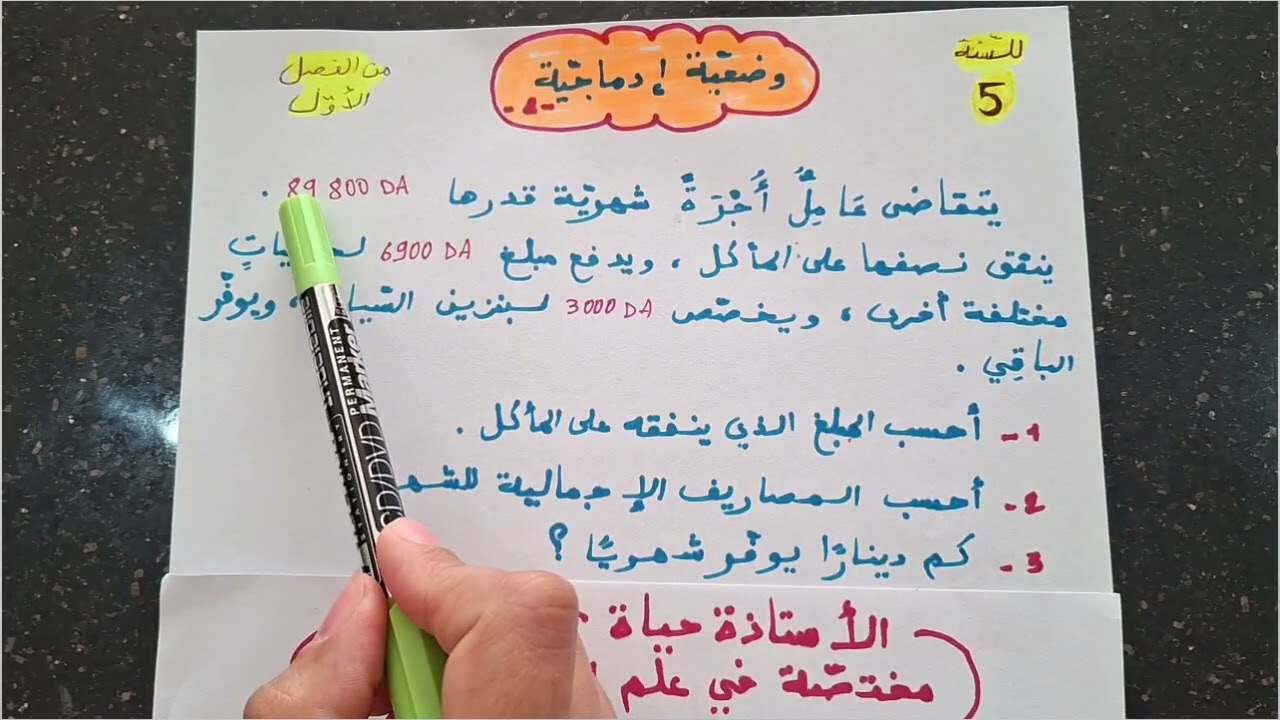 للسّنة
5
وضعيّة إدماجيّة
-1-
من الفصل
الأوّل
يتقاضى عَامِلٌ أُجْرَةً شهريّة قدرها 89 800 DA .
ينفق نصفها على المأكل ، ويدفع مبلغ 6900 DA
مختلفة أخرى ، ويخصّص 3000 DA لبنزين ، ويوفّر
الباقِي .
1- أحسب المبلغ الذي ينفقه على المأكل .
2- أحسب المصاريف الإجمالية
3- كم دينارًا يوفّر شهريًا ؟
الأستاذة حياة
مختصّة في علم
PERMANENT
Marker
CD/DVD